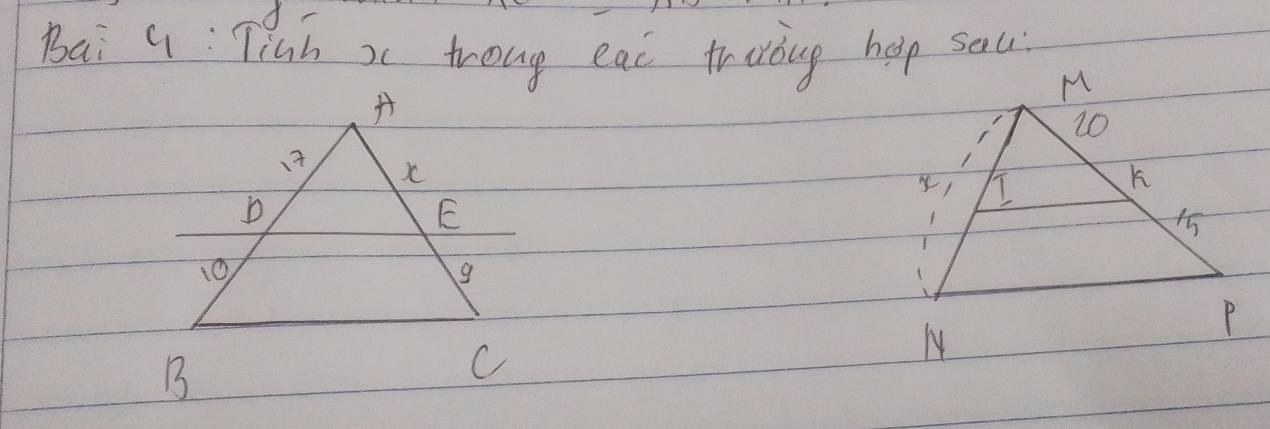 Bài 4 : Tính x trong các trường hợp sau:
A
17
x
D
E
10
9
B
C
M
20
x
I
K
15
N
P